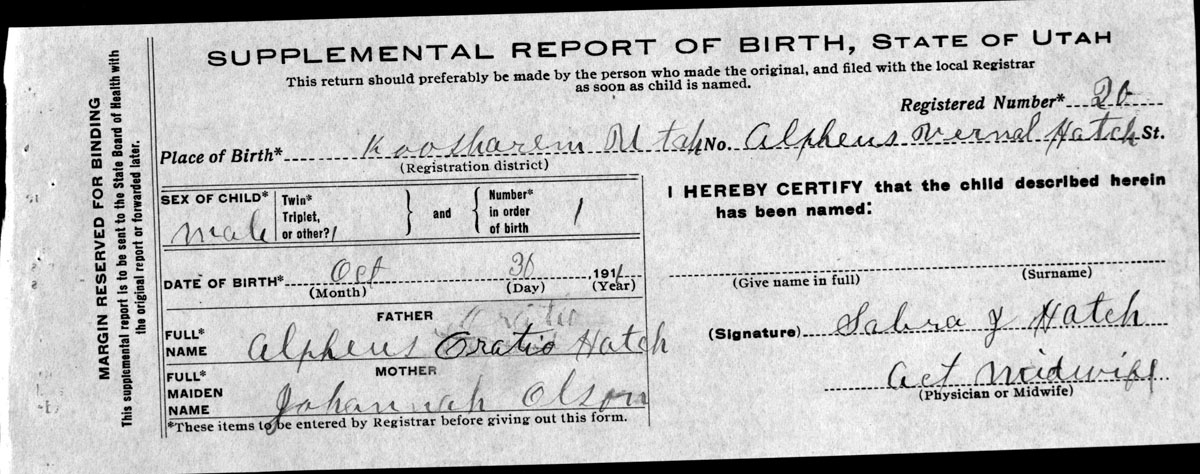 SUPPLEMENTAL REPORT OF BIRTH, STATE OF UTAH
This return should preferably be made by the person who made the original, and filed with the local Registrar
as soon as child is named.
Registered Number* 20
Place of Birth* Koosharem Utah No. Alpheus Vernal Hatch St.
(Registration district)
SEX OF CHILD* Male
Twin*
Triplet,
or other? 1
and
Number*
in order
of birth
1
DATE OF BIRTH* Oct 30, 1911
(Month) (Day) (Year)
FATHER
FULL*
NAME
Alpheus Oratio Hatch
MOTHER
FULL*
MAIDEN
NAME
Johannah Olson
*These items to be entered by Registrar before giving out this form.
I HEREBY CERTIFY that the child described herein
has been named:
(Give name in full) (Surname)
(Signature) Sabra J Hatch
act Midwife
(Physician or Midwife)
MARGIN RESERVED FOR BINDING
This supplemental report is to be sent to the State Board of Health with
the original report or forwarded later.